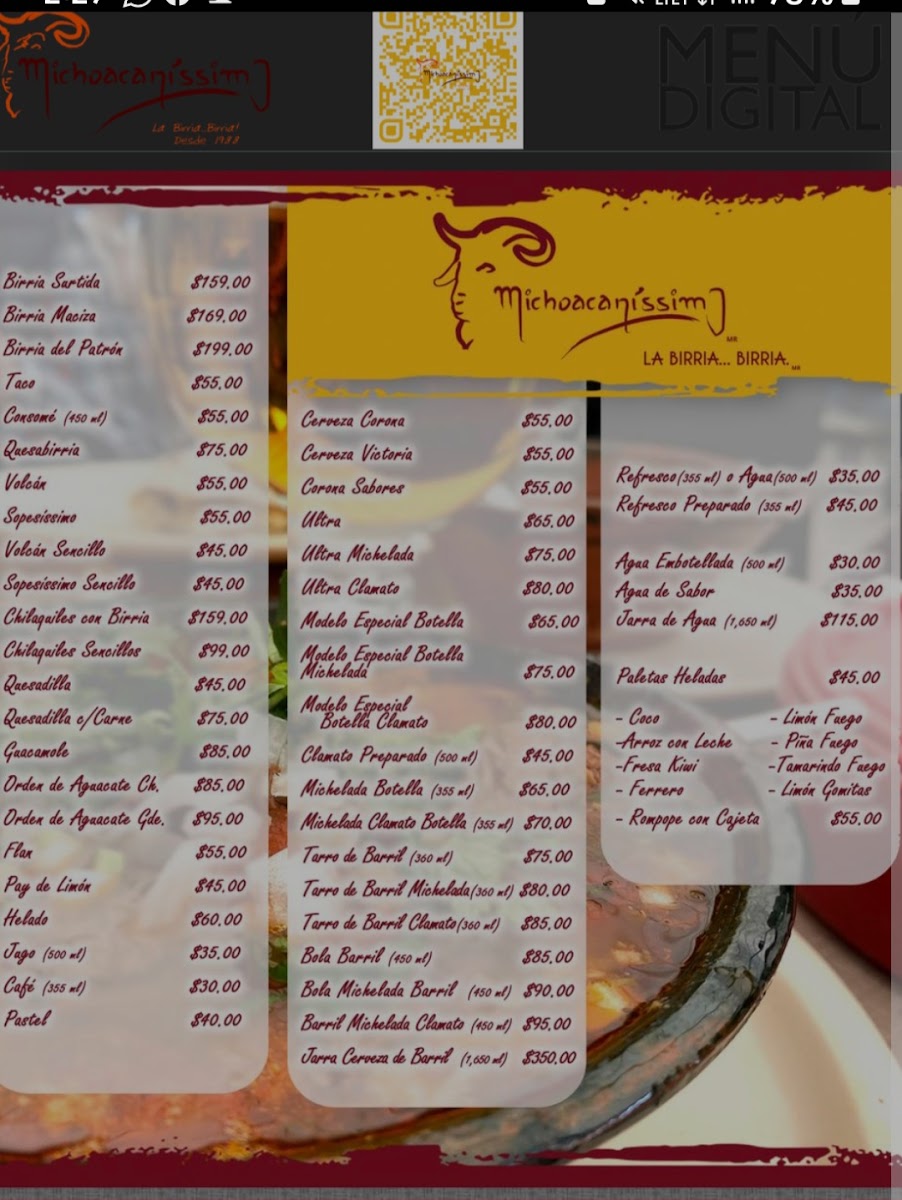 Michoacaníssimo
La Birria...Birria!
Desde 1988
MENÚ
DIGITAL
Birria Surtida $159.00
Birria Maciza $169.00
Birria del Patrón $199.00
Taco $55.00
Consomé (450 ml) $55.00
Quesabirria $75.00
Volcán $55.00
Sopesíssimo $55.00
Volcán Sencillo $45.00
Sopesíssimo Sencillo $45.00
Chilaquiles con Birria $159.00
Chilaquiles Sencillos $99.00
Quesadilla $45.00
Quesadilla c/Carne $75.00
Guacamole $85.00
Orden de Aguacate Ch. $85.00
Orden de Aguacate Gde. $95.00
Flan $55.00
Pay de Limón $45.00
Helado $60.00
Jugo (500 ml) $35.00
Café (355 ml) $30.00
Pastel $40.00
Michoacaníssimo
MR
LA BIRRIA... BIRRIA.
MR
Cerveza Corona $55.00
Cerveza Victoria $55.00
Corona Sabores $55.00
Ultra $65.00
Ultra Michelada $75.00
Ultra Clamato $80.00
Modelo Especial Botella $65.00
Modelo Especial Botella
Michelada $75.00
Modelo Especial
Botella Clamato $80.00
Clamato Preparado (500 ml) $45.00
Michelada Botella (355 ml) $65.00
Michelada Clamato Botella (355 ml) $70.00
Tarro de Barril (360 ml) $75.00
Tarro de Barril Michelada(360 ml) $80.00
Tarro de Barril Clamato(360 ml) $85.00
Bola Barril (450 ml) $85.00
Bola Michelada Barril (450 ml) $90.00
Barril Michelada Clamato (450 ml) $95.00
Jarra Cerveza de Barril (1,650 ml) $350.00
Refresco(355 ml) o Agua(500 ml) $35.00
Refresco Preparado (355 ml) $45.00
Agua Embotellada (500 ml) $30.00
Agua de Sabor $35.00
Jarra de Agua (1,650 ml) $115.00
Paletas Heladas $45.00
- Coco - Limón Fuego
-Arroz con Leche - Piña Fuego
-Fresa Kiwi -Tamarindo Fuego
- Ferrero - Limón Gomitas
- Rompope con Cajeta $55.00